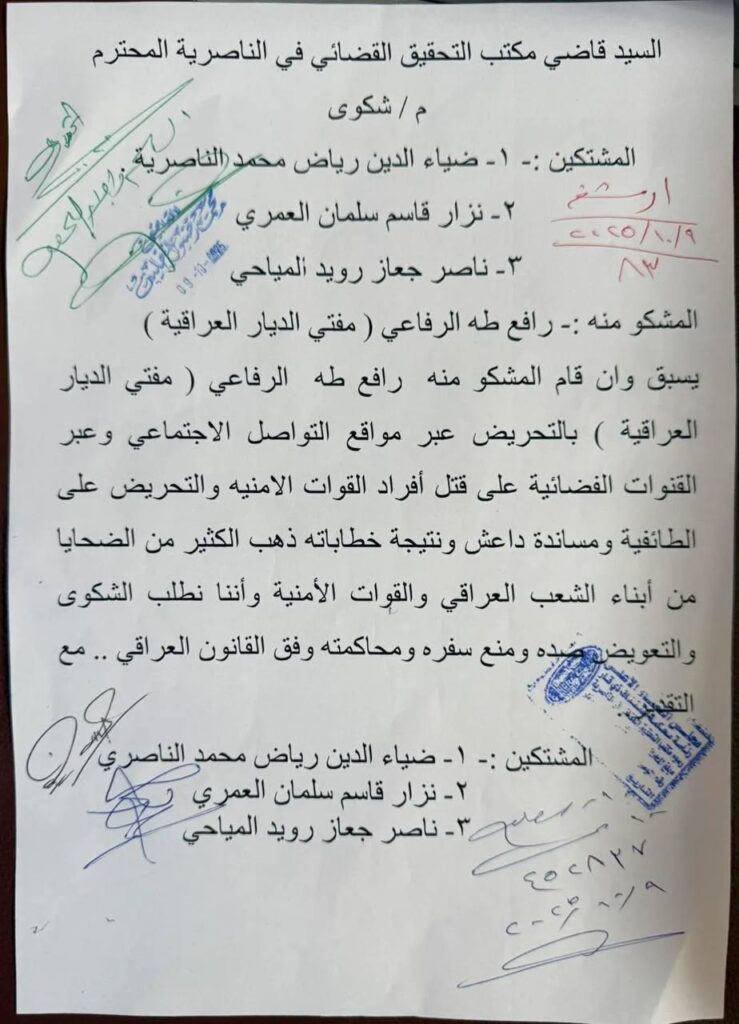 السيد قاضي مكتب التحقيق القضائي في الناصرية المحترم
م / شكوى
المشتكين :- ١- ضياء الدين رياض محمد الناصرية.
٢- نزار قاسم سلمان العمري
٣- ناصر جعاز رويد المياحي
٢٠٢٥/١٠/٩
٨٣
09-10-2025
المشكو منه :- رافع طه الرفاعي ( مفتي الديار العراقية )
يسبق وان قام المشكو منه رافع طه الرفاعي ( مفتي الديار
العراقية ) بالتحريض عبر مواقع التواصل الاجتماعي وعبر
القنوات الفضائية على قتل أفراد القوات الامنيه والتحريض على
الطائفية ومساندة داعش ونتيجة خطاباته ذهب الكثير من الضحايا
من أبناء الشعب العراقي والقوات الأمنية وأننا نطلب الشكوى
والتعويض ضده ومنع سفره ومحاكمته وفق القانون العراقي .. مع
التقدير
المشتكين :- ١- ضياء الدين رياض محمد الناصري
٢- نزار قاسم سلمان العمري
٣- ناصر جعاز رويد المياحي
٤٥٢٨٣٧
٢٠٢٥/١٠/٩